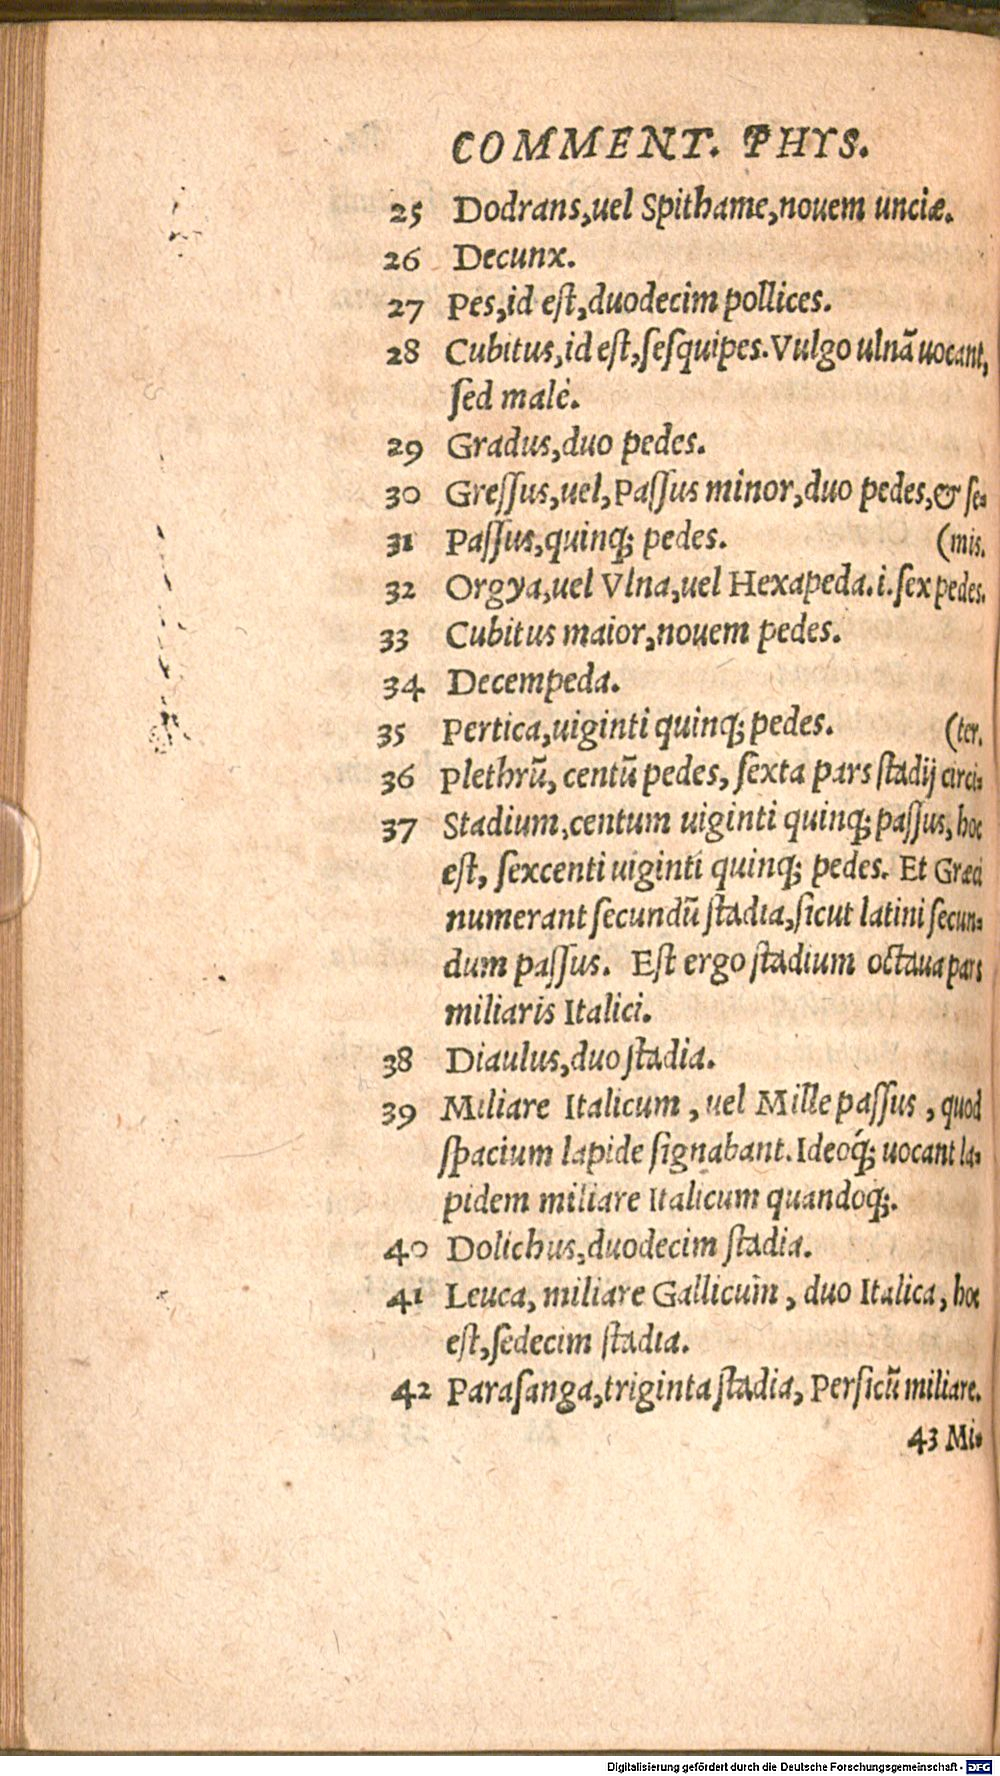 COMMENT. PHYS.
25 Dodrans,uel Spithame,nouem unciæ.
26 Decunx.
27 Pes,id eſt,duodecim pollices.
28 Cubitus,id eſt,ſeſquipes.Vulgo ulnã uocant,
ſed malè.
29 Gradus,duo pedes.
30 Greſſus,uel,Paſſus minor,duo pedes,& ſe-
31 Paſſus,quinq; pedes. (mis.
32 Orgya,uel Vlna,uel Hexapeda.i.ſex pedes.
33 Cubitus maior,nouem pedes.
34 Decempeda.
35 Pertica,uiginti quinq; pedes. (ter.
36 Plethrũ, centũ pedes, ſexta pars ſtadij circi-
37 Stadium,centum uiginti quinq; paſſus, hoc
eſt, ſexcenti uiginti quinq; pedes. Et Græci
numerant ſecundũ ſtadia,ſicut latini ſecun-
dum paſſus. Eſt ergo ſtadium octaua pars
miliaris Italici.
38 Diaulus,duo ſtadia.
39 Miliare Italicum, uel Mille paſſus, quod
ſpacium lapide ſignabant.Ideoq́; uocant la-
pidem miliare Italicum quandoq;.
40 Dolichus,duodecim ſtadia.
41 Leuca, miliare Gallicum, duo Italica, hoc
eſt,ſedecim ſtadia.
42 Paraſanga,triginta ſtadia, Perſicũ miliare.
43 Mi-
Digitalisierung gefördert durch die Deutsche Forschungsgemeinschaft - DFG